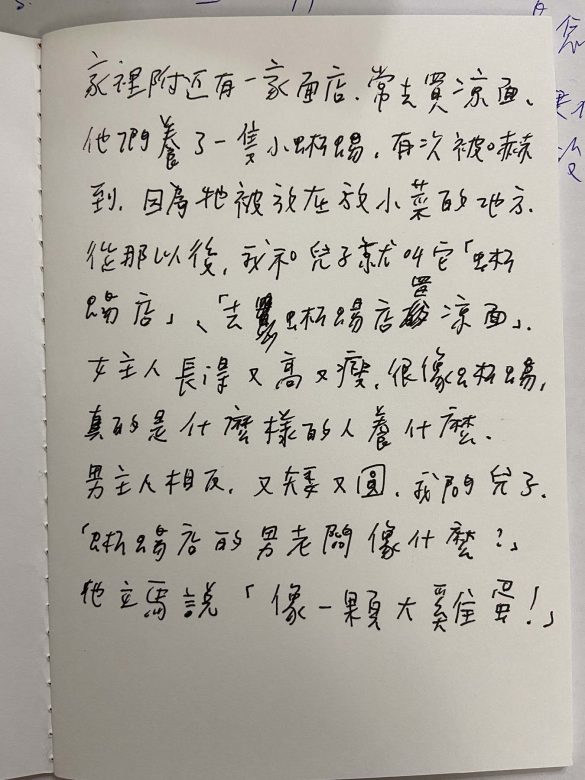 家裡附近有一家面店.常去買凉面、
他們養了一隻小蜥蜴.有次被嚇
到.因為牠被放在放小菜的地方.
從那以後,我和兒子就叫它「蜥
蜴店」、「去蜥蜴店買凉面」.
女主人長得又高又瘦.很像蜥蜴,
真的是什麼樣的人養什麼.
男主人相反.又矮又圓.我問兒子.
「蜥蜴店的男老闆像什麼?」
他立馬說「像一顆大雞蛋!」